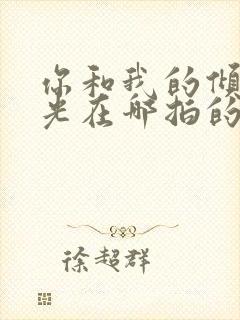 你和我的倾
光在哪拍的
徐超群